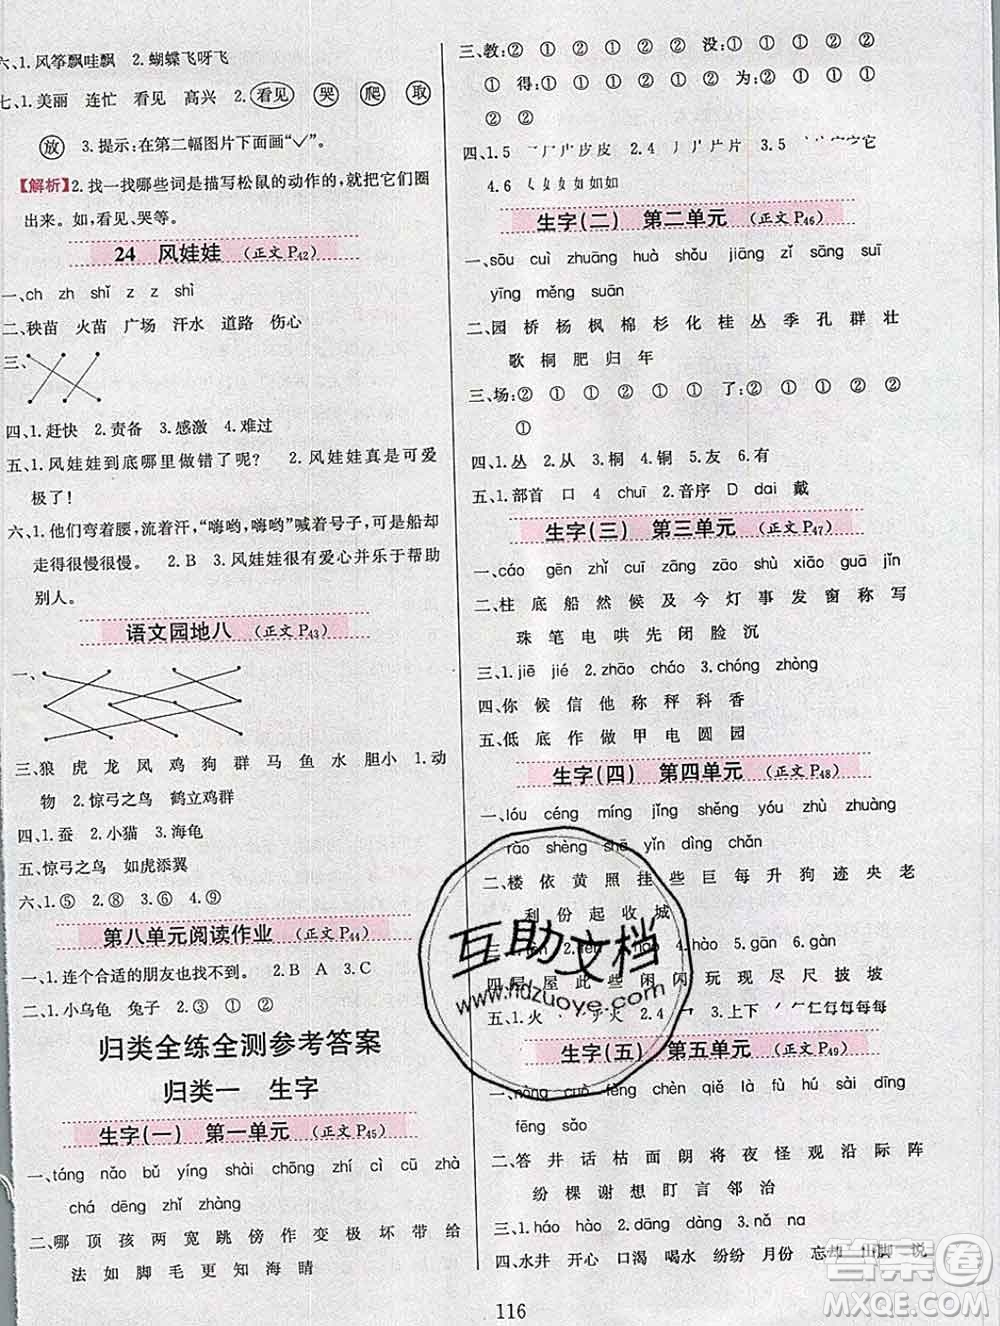 六、1.风筝飘哇飘 2.蝴蝶飞呀飞
七、1.美丽 连忙 看见 高兴 2.看见 哭 爬 取
放 3.提示:在第二幅图片下面画“✓”。
【解析】2.找一找哪些词是描写松鼠的动作的,就把它们圈
出来。如,看见、哭等。
24 风娃娃 (正文P42)
一、ch zh shǐ z z shì
二、秧苗 火苗 广场 汗水 道路 伤心
三、
四、1.赶快 2.责备 3.感激 4.难过
五、1.风娃娃到底哪里做错了呢? 2.风娃娃真是可爱
极了!
六、1.他们弯着腰,流着汗,“嗨哟,嗨哟”喊着号子,可是船却
走得很慢很慢。 2.B 3.风娃娃很有爱心并乐于帮助
别人。
语文园地八 (正文P43)
一、
三、狼 虎 龙 凤 鸡 狗 群 马 鱼 水 胆小 1.动
物 2.惊弓之鸟 鹤立鸡群
四、1.蚕 2.小猫 3.海龟
五、惊弓之鸟 如虎添翼
六、1.⑤ 2.⑧ 3.⑥ 4.⑨
第八单元阅读作业 (正文P44)
一、1.连个合适的朋友也找不到。 2.B A 3.C
二、1.小乌龟 兔子 2.③ ① ②
归类全练全测参考答案
归类一 生字
生字(一) 第一单元 (正文P45)
一、táng nǎo bǔ yíng shài chōng zhí dù chà
chá dēng zhǐ zhàng
二、哪 顶 孩 两 宽 跳 傍 作 变 极 坏 带 给
法 如 脚 毛 更 知 海 睛
三、教:② ① ② ① ② ② 没:① ② ① ②
① 得:② ① ② ① ① ② 为:② ① ① ①
② ②
四、1.5 皮皮 2.4 片片 3.5 它它
4.6 如如如
生字(二) 第二单元 (正文P46)
一、sōu cuì zhuāng huà shǒu jiāng zǐ shǎng sú
yīng měng suān
二、园 桥 杨 枫 棉 杉 化 桂 丛 季 孔 群 壮
歌 桐 肥 归 年
三、场:② ① ② ① ① ① 了:② ① ② ②
①
四、1.丛 2.从 3.桐 4.铜 5.友 6.有
五、1.部首 口 4 chuī 2.音序 D dai 戴
生字(三) 第三单元 (正文P47)
一、cáo gēn zhǐ cuī zāng zāo zhù xiāo guā jǐn
二、柱 底 船 然 候 及 今 灯 事 发 窗 称 写
珠 笔 电 哄 先 闭 脸 沉
三、1.jiē jié 2.zhāo cháo 3.chóng zhòng
四、你 候 信 他 称 秤 科 香
五、低 底 作 做 甲 电 圆 园
生字(四) 第四单元 (正文P48)
一、lóu céng míng jǐng shěng yóu zhù zhuàng
rào shèng shē yǐn dìng chǎn
二、楼 依 黄 照 挂 些 巨 每 升 狗 迹 央 老
利 份 起 收 城
4.hào 5.gān 6.gàn
四、屋 屋 此 些 闲 闪 玩 现 尽 尺 披 坡
五、1.火 火 2.4 3.上下
生字(五) 第五单元 (正文P49)
一、nòng cuò fēng chèn qiě là fú hú sài dīng
fēng sǎo
二、答 井 话 枯 面 朗 将 夜 怪 观 沿 际 阵
纷 棵 谢 想 盯 言 邻 治
三、1.háo hào 2.dāng dàng 3.nǎ na
四、水井 开心 口渴 喝水 纷纷 月份
116
互助文档
www.hdzuoye.com
答案圈
MXQE.COM